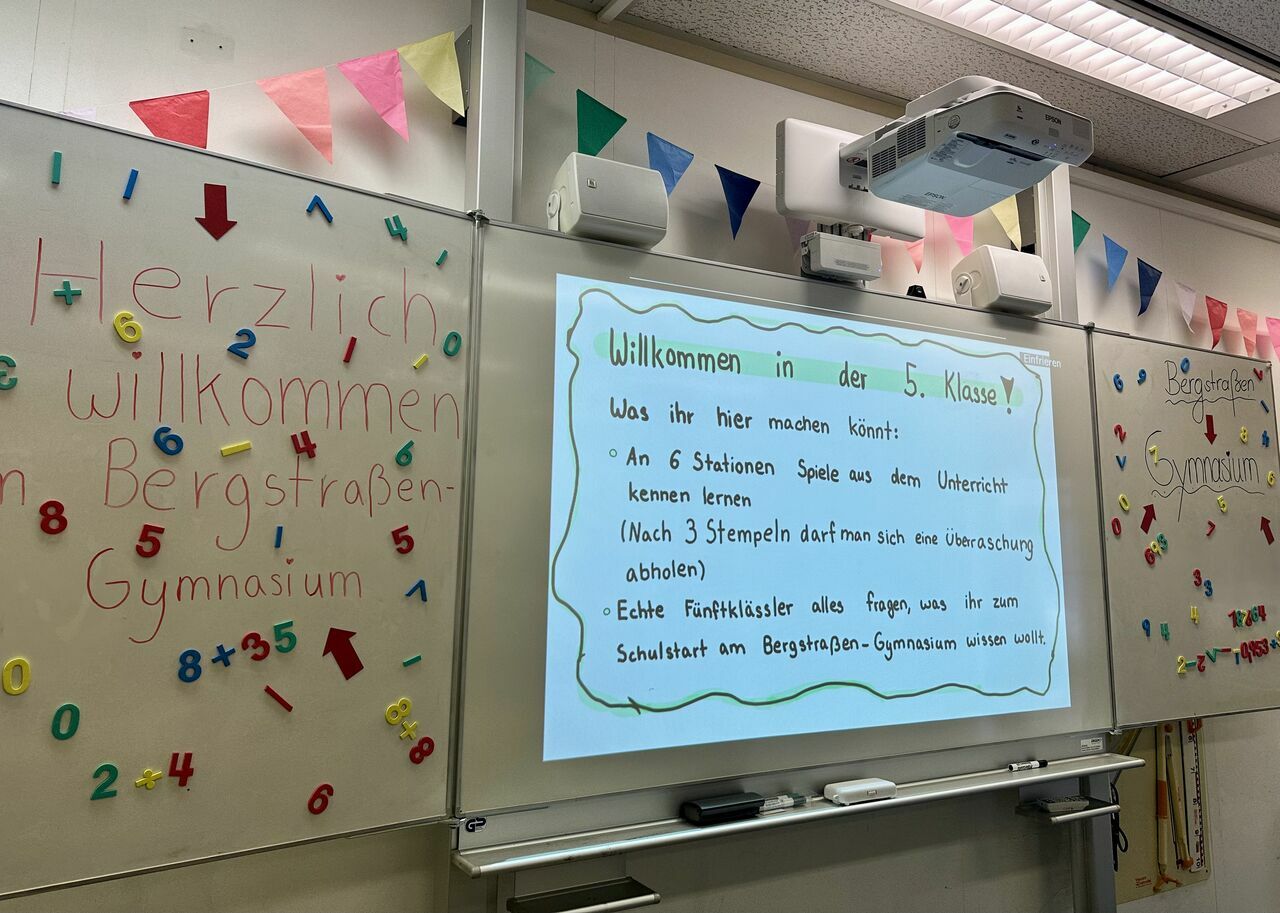 Herzlich
willkommen
Bergstraßen-
Gymnasium
8+35
8+8
2÷4
EPSON
EPSON
Einfrieren
Willkommen in der 5. Klasse!
Was ihr hier machen könnt:
An 6 Stationen Spiele aus dem Unterricht
kennen lernen
(Nach 3 Stempeln darf man sich eine Überraschung
abholen)
Echte Fünftklässler alles fragen, was ihr zum
Schulstart am Bergstraßen-Gymnasium wissen wollt.
Bergstraßen
Gymnasium